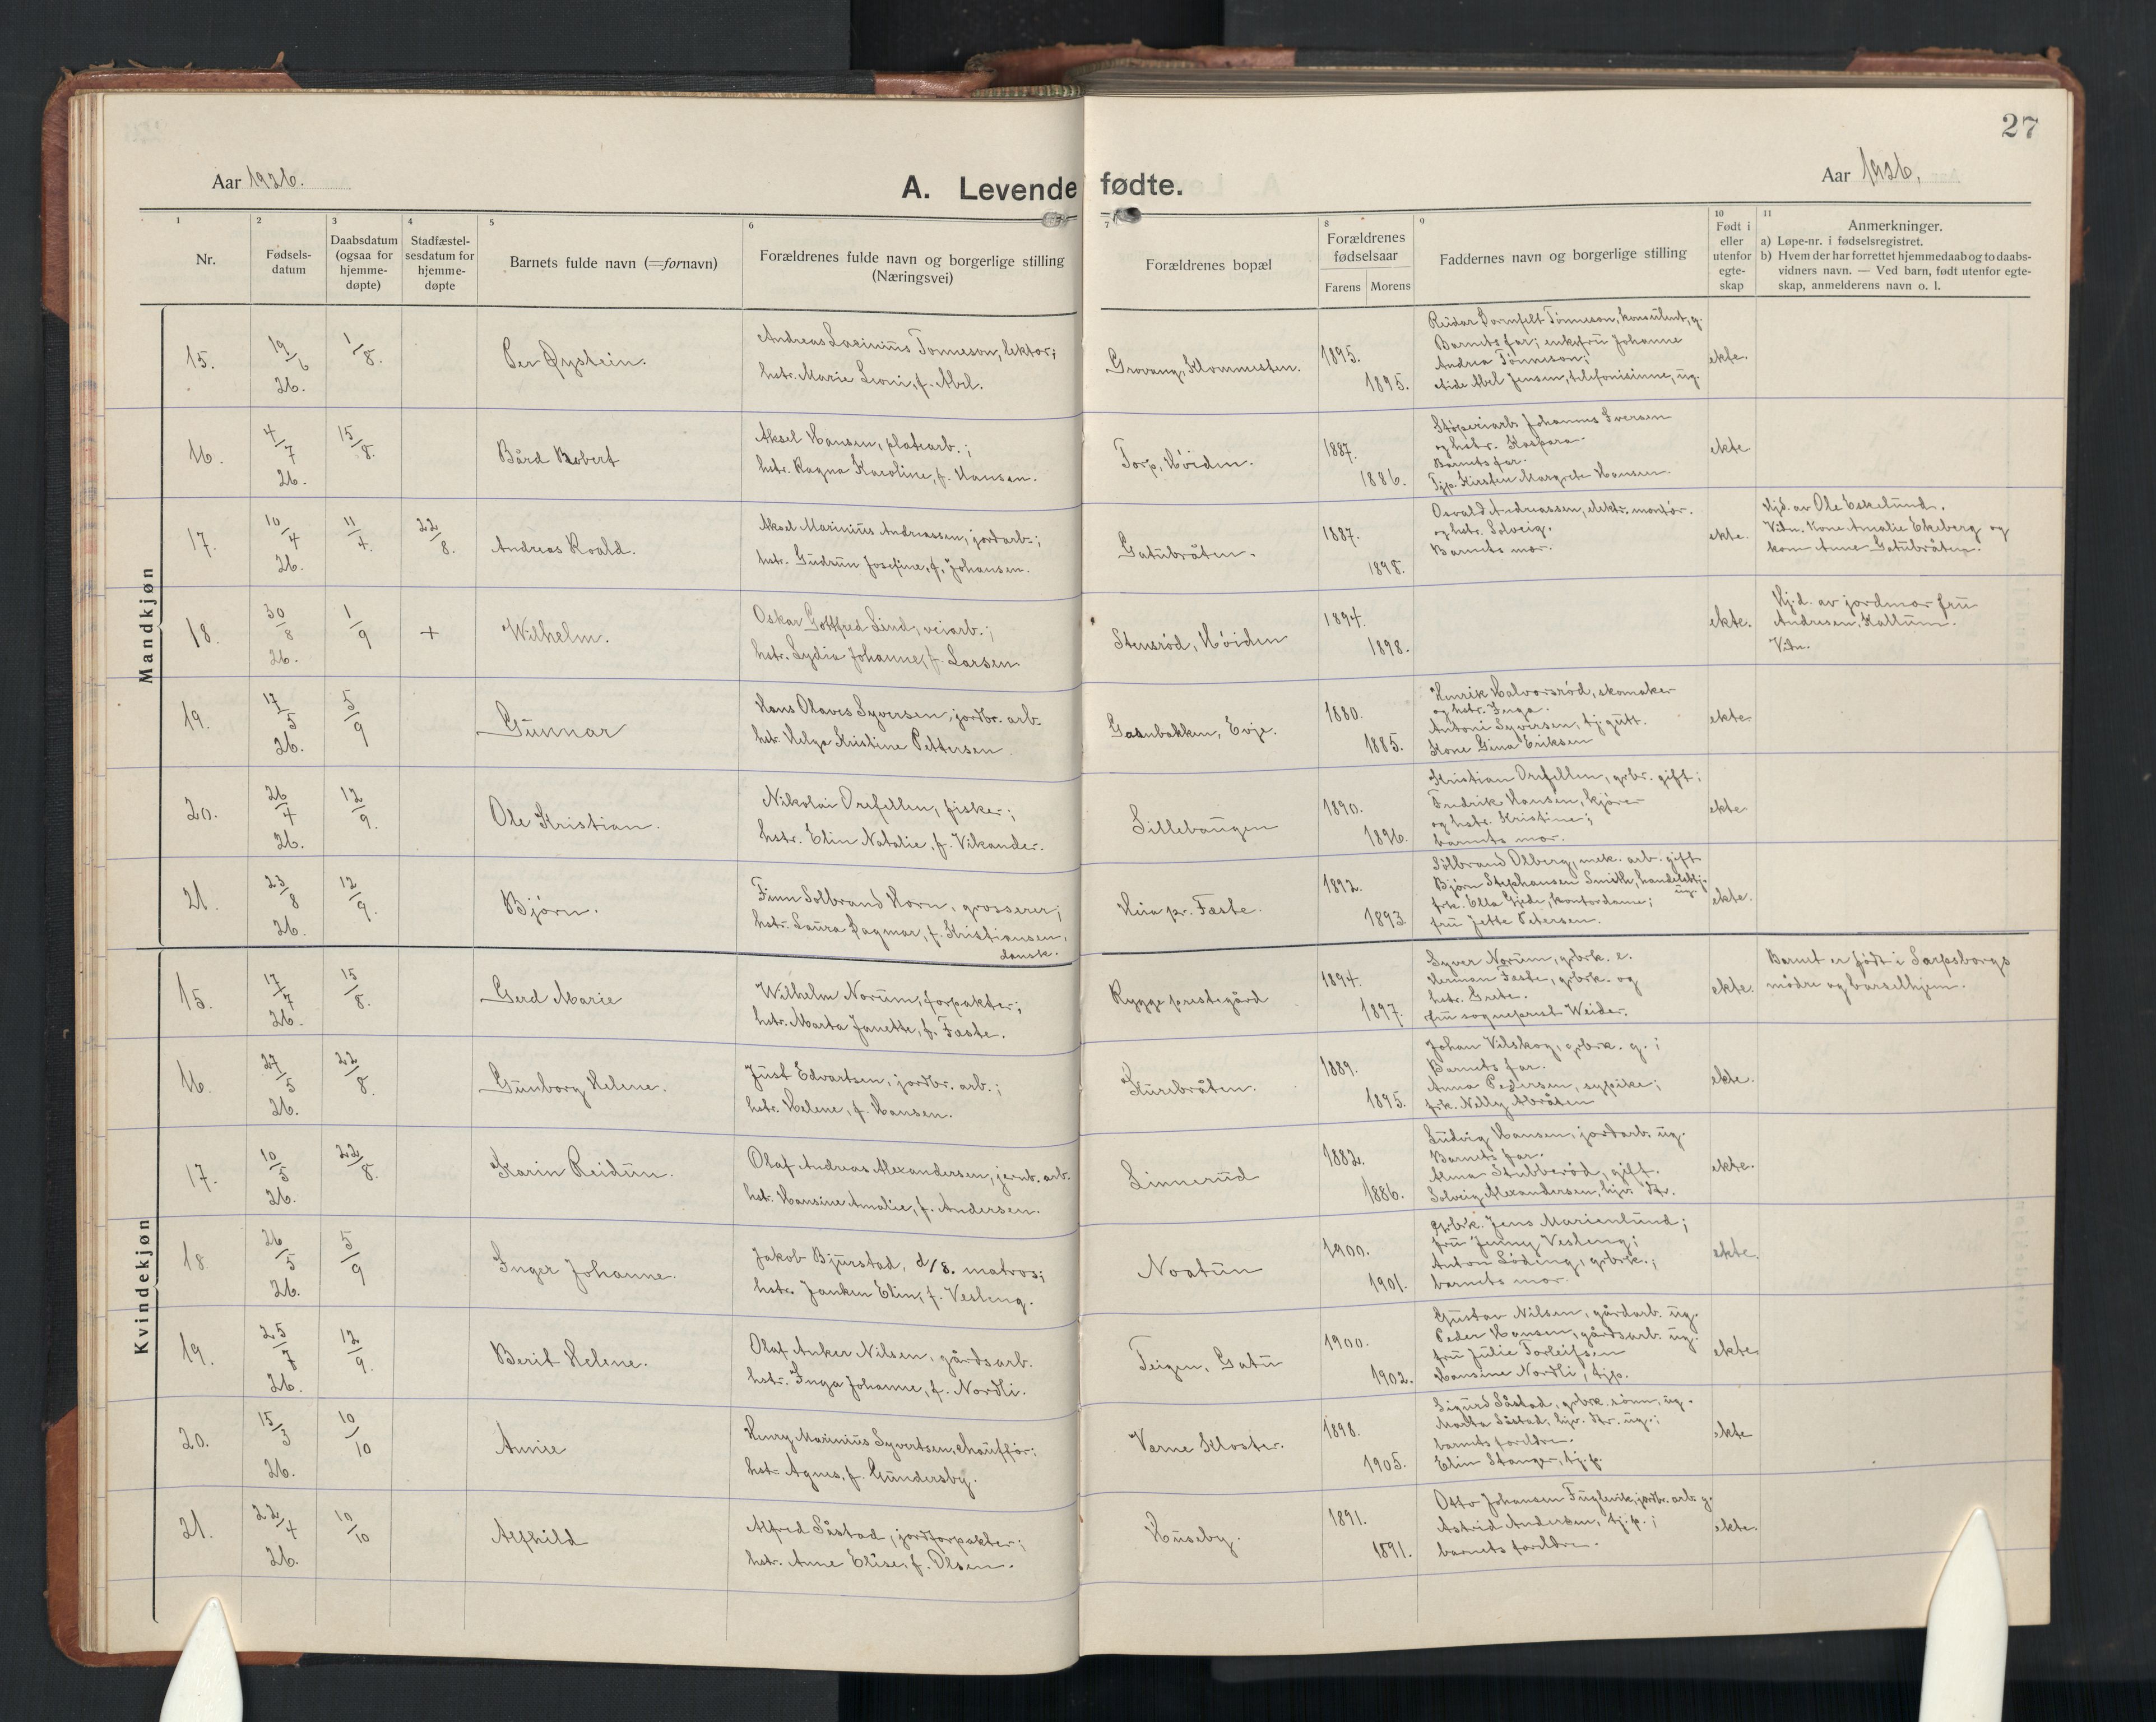 27
Aar 1926.
A. Levende fødte.
Aar 1926.
1 2 3 4 5 6 7 8 9 10 11
Nr.
Fødsels-
datum
Daabsdatum
(ogsaa for
hjemme-
døpte)
Stadfæstel-
sesdatum for
hjemme-
døpte
Barnets fulde navn (=fornavn)
Forældrenes fulde navn og borgerlige stilling
(Næringsvei)
Forældrenes bopæl
Forældrenes
fødselsaar
Farens Morens
Faddernes navn og borgerlige stilling
Født i
eller
utenfor
egte-
skap
Anmerkninger.
a) Løpe-nr. i fødselsregistret.
b) Hvem der har forrettet hjemmedaab og to daabs-
vidners navn. — Ved barn, født utenfor egte-
skap, anmelderens navn o. l.
Mandkjøn
15. 19/6 26. 1/8. Per Øystein.
Andreas Tønneson, lektor;
hstr. Marie Leoni, f. Abel.
1895.
1895.
Reidar Tønneson, konsulent, g.
Barnets far; enkefru Johanne
Andrea Tønneson;
Abel Jensen, telefonistinne, ug.
ekte.
16. 4/7 26. 15/8. Bård Robert
Aksel Hansen, platearb.;
hstr. Ragna Karoline, f. Hansen.
Torp, Høiden.
1887.
1886.
Støperiarb. Johannes Iversen
og hstr. Kaspara.
Barnets far.
Tjp. Kirsten Margrete Hansen.
ekte
17. 10/4 26. 11/4. 22/8. Andreas Roald.
Aksel Marinius Andreassen, jordarb.;
hstr. Gudrun Josefine, f. Johansen.
Gatubråten.
1887.
1898.
Osvald Andreassen, elektr. montør.
og hstr. Solveig.
Barnets mor.
ekte.
Hjd. av Ole Eskelund.
Vitn. Kone Amalie Ekeberg og
kone Anne Gatubråten.
18. 30/8 26. 1/9 + Wilhelm.
Oskar Gottfred Lind, veiarb.;
hstr. Lydia Johanne, f. Larsen.
Stensrød, Høiden
1894.
1898.
ekte.
Hj.d. av jordmor fru
Andresen, Kallum.
Vitn.
19. 17/5 26. 5/9 Gunnar
Hans Olaves Syversen, jordbr. arb.
hstr. Helga Kristine Pettersen
Gasnbakken, Evje.
1880.
1885.
Henrik Halvorsrød, skomaker
og hstr. Inga.
Antoni Syversen, tj. gutt.
Kone Gina Eriksen
ekte.
20. 26/4 26. 12/9. Ole Kristian.
Nikolai Orefellen, fisker;
hstr. Elin Natalie, f. Vikander.
Sillebaugen
1890.
1896.
Kristian Orefellen, grbr. gift;
Fredrik Hansen, kjører
og hstr. Kristine;
barnets mor.
ekte
21. 23/8 26. 12/9. Bjørn.
Finn Solbrand Horn, grosserer;
hstr. Laura Dagmar, f. Kristiansen,
dansk.
pr. Fæste.
1892.
1893.
Solbrand Olberg, mek. arb. gift
Bjørn Stephansen Smith, handelsbtj.
ug.
frk. Ella Gjede, kontordame;
fru Jette Petersen.
ekte.
Kvindekjøn
15. 17/7 26. 15/8. Gerd Marie
Wilhelm Norum, forpakter;
hstr. Marta Janette, f. Fæste.
Rygge prestegård
1894.
1897.
Syver Norum, grbrk. e.
Herman Fæste, grbrk. og
hstr. Grete.
fru sogneprest Weider.
ekte.
Barnet er født i Sarpsborgs
mødre og barselhjem.
16. 27/5 26. 22/8. Gunborg Helene.
Just Edvartsen, jordbr. arb.;
hstr. Helene, f. Hansen.
Kurebråten.
1889.
1895.
Johan Vilskog, grbrk. g.;
Barnets far.
Anna Pedersen, sypike;
frk. Nelly Abråten
ekte.
17. 10/5 26. 22/8. Karin Reidun.
Olaf Andreas Alexandersen, jernb. arb.
hstr. Hansine Amalie, f. Andersen.
Linnerud
1882.
1886.
Ludvig Hansen, jordarb. ug.
Barnets far.
Alma Stubberød, gift.
Solveig Alexandersen, hjv. dtr.
ekte.
18. 26/5 26. 5/9 Inger Johanne.
Jakob Bjurstad, d/s. matros;
hstr. Janken Elin, f. Vesleng.
Noatun
1900.
1901.
grbrk. Jens Marienlund;
fru Jenny Vesleng;
Anton Løding, grbrk.;
barnets mor.
ekte.
19. 25/7 26. 12/9. Berit Helene.
Olaf Anker Nilsen, gårdsarb.
hstr. Inga Johanne, f. Nordli.
Teigen, Gatu
1900.
1902.
Gustav Nilsen, gårdarb. ug.
Peder Hansen, gårdsarb. ug.
fru Julie Torleifsen
Hansine Nordli, tjp.
ekte.
20. 15/3 26. 10/10 Annie
Henry Marinius Syvertsen, chauffør;
hstr. Agnes, f. Gundersby.
Værne Kloster.
1898.
1905.
Sigurd Såstad, grbrk. sønn, ug.
Marta Såstad, hjv. dtr. ug.;
barnets foreldre.
Elin Stanger, tj.p.
ekte
21. 22/4 26. 10/10 Alfhild
Alfred Såstad, jordforpakter;
hstr. Anne Elise, f. Olsen.
Huseby.
1891.
1891.
Otto Johansen Fuglevik, jordbr. arb. g.
Astrid Andersen, tj.p.;
barnets foreldre.
ekte.